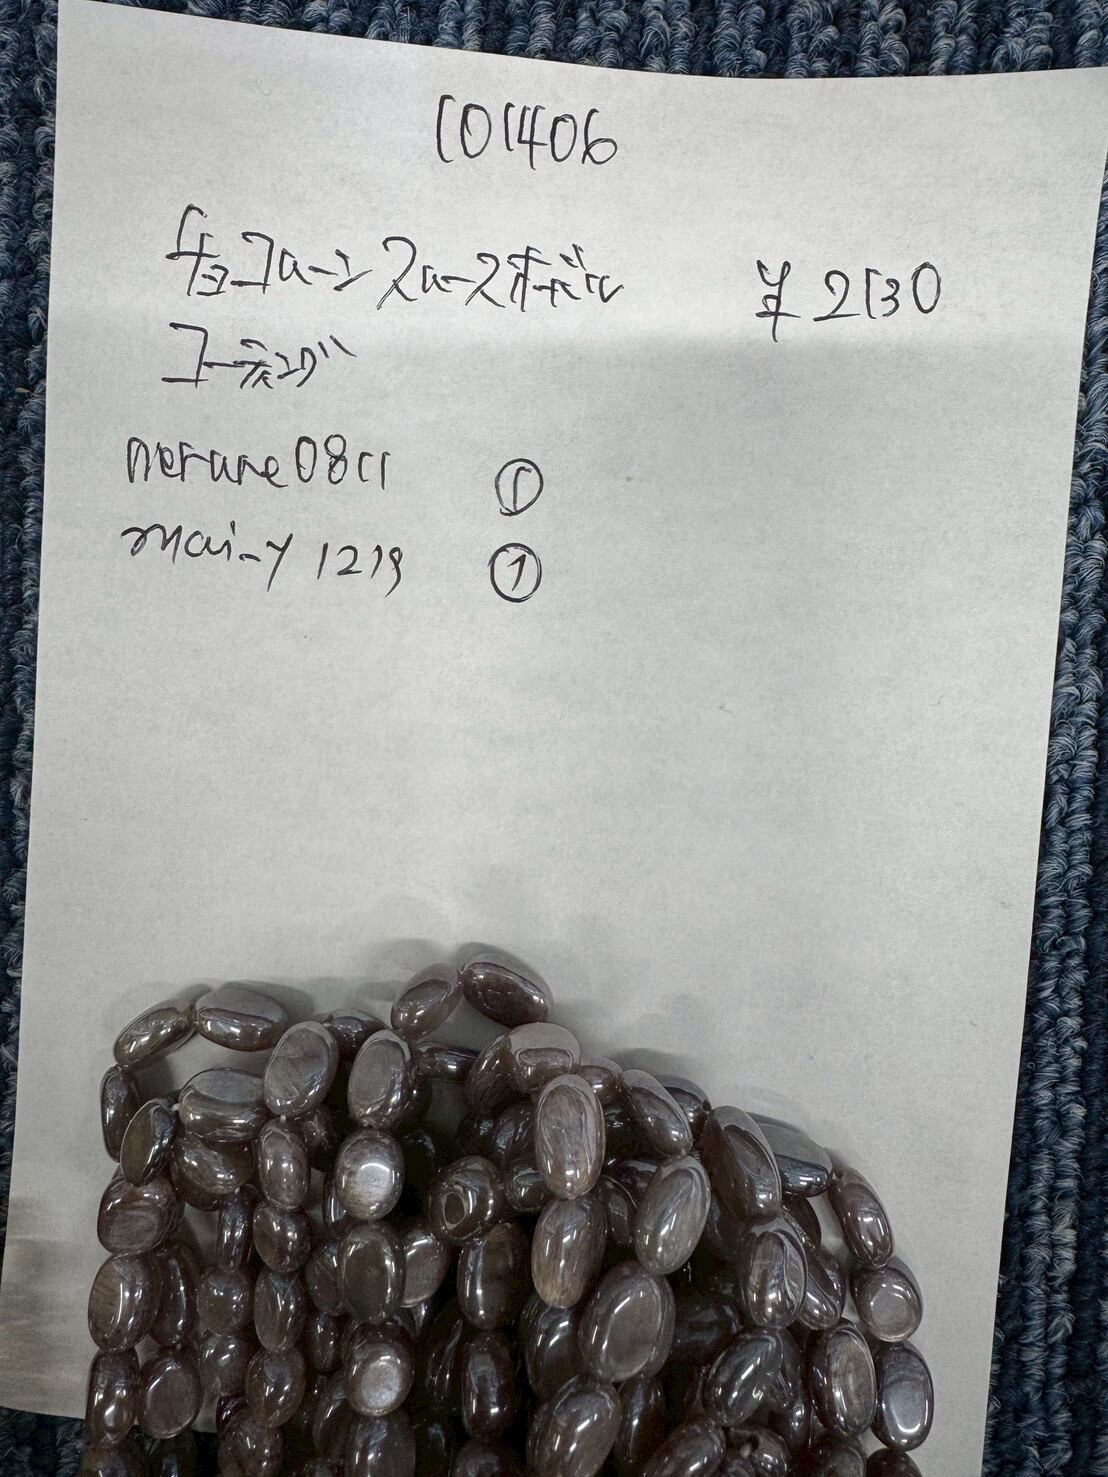 101406
チョコムーン スムースオーバル ¥2130
コーティング
merure0811 ①
mai-y 1219 ①